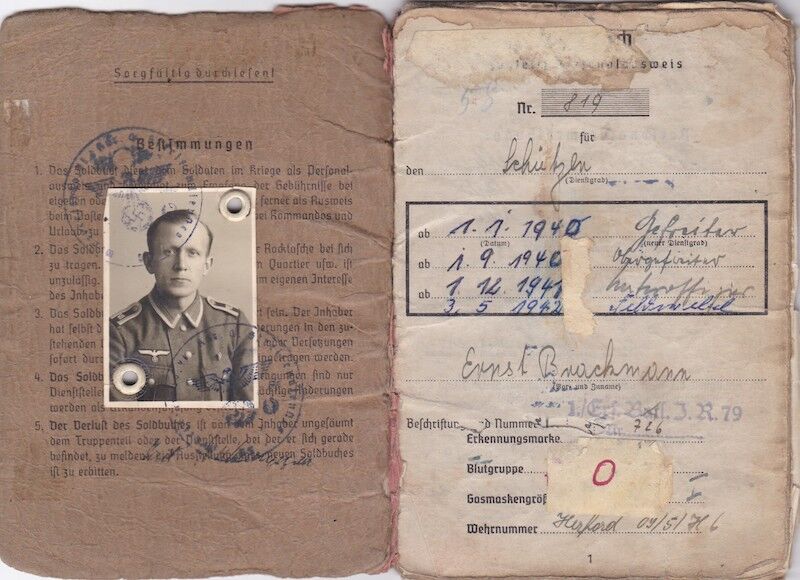 Sorgfältig durchlesen!
Bestimmungen
1. Das Soldbuch dient dem Soldaten im Kriege als Personal-
der Gebührnisse bei
eigenen oder ferner als Ausweis
beim Poste bei Kommandos und
Urlaub
2. Das Soldb der Rocktasche bei sich
zu tragen. Quartier usw. ist
unzulässig. im eigenen Interesse
des Inhabe
3. Das Soldb sein. Der Inhaber
hat selbst d erungen in den zu-
stehenden der Versetzungen
sofort durch getragen werden.
4. Das Soldb gungen sind nur
Dienststelle
werden als
5. Der Verlust des Soldbuches ist vom Inhaber ungesäumt
dem Truppenteil oder der Dienststelle, bei der er sich gerade
befindet, zu melden neuen Soldbuches
ist zu erbitten.
ausweis
Nr. 819
für
den Schützen
(Dienstgrad)
ab 1. 1. 1940 Gefreiter
(Datum) (neuer Dienstgrad)
ab 1. 9. 1940 Obergefreiter
ab 1. 12. 1941 Unteroffizier
3. 5. 1942 Feldwebel
Ernst Brachmann
(Vor- und Zuname)
1./Erf. Batl. J. R. 79
Beschriftun d Nummer
Nr. 726
Erkennungsmarke
Blutgruppe O
Gasmaskengröß I
Wehrnummer Herford 09/5/H 6
1